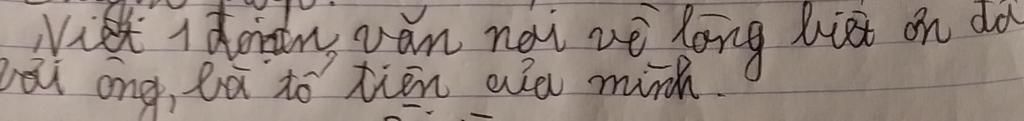 Viết 1 đoạn văn nói về lòng biết ơn đố
với ông, bà tổ tiên của mình.